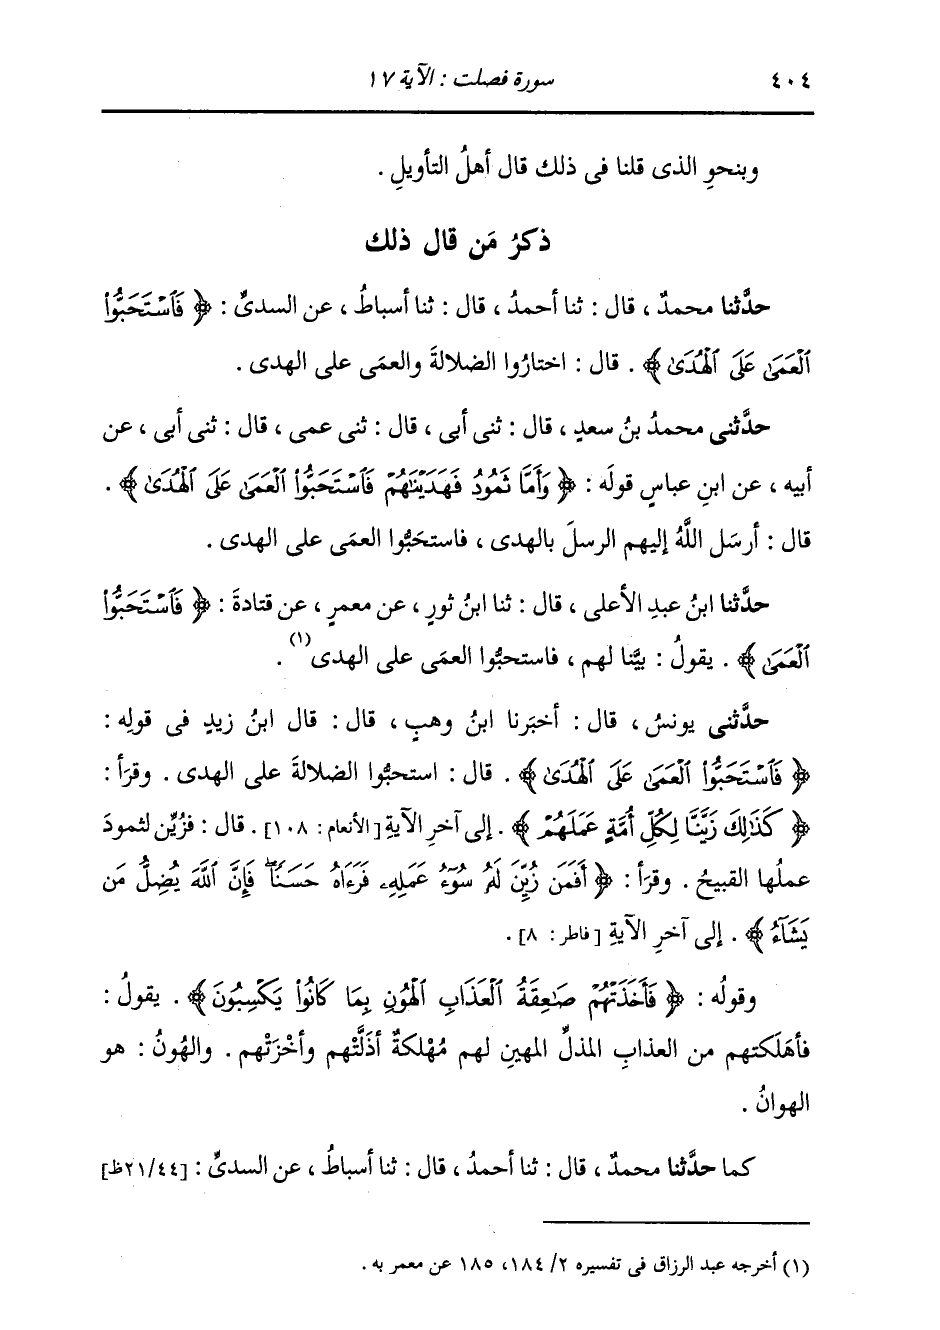 ٤٠٤ سورة فصلت : الآية ١٧
وبنحوِ الذى قلنا فى ذلك قال أهلُ التأويلِ .
ذكرُ مَن قال ذلك
حدَّثنا محمدٌ ، قال : ثنا أحمدُ ، قال : ثنا أسباطُ ، عن السدىِّ : ﴿ فَٱسْتَحَبُّوا۟
ٱلْعَمَىٰ عَلَى ٱلْهُدَىٰ ﴾ . قال : اختارُوا الضلالةَ والعمَى على الهدى .
حدَّثنى محمدُ بنُ سعدٍ ، قال : ثنى أبى ، قال : ثنى عمى ، قال : ثنى أبى ، عن
أبيه ، عن ابنِ عباسٍ قولَه : ﴿ وَأَمَّا ثَمُودُ فَهَدَيْنَٰهُمْ فَٱسْتَحَبُّوا۟ ٱلْعَمَىٰ عَلَى ٱلْهُدَىٰ ﴾ .
قال : أرسَل اللَّهُ إليهم الرسلَ بالهدى ، فاستحَبُّوا العمَى على الهدى .
حدَّثنا ابنُ عبدِ الأعلى ، قال : ثنا ابنُ ثورٍ ، عن معمرٍ ، عن قتادةَ : ﴿ فَٱسْتَحَبُّوا۟
ٱلْعَمَىٰ ﴾ . يقولُ : بيَّنا لهم ، فاستحبُّوا العمَى على الهدى(١) .
حدَّثنى يونسُ ، قال : أخبَرنا ابنُ وهبٍ ، قال : قال ابنُ زيدٍ فى قولِه :
﴿ فَٱسْتَحَبُّوا۟ ٱلْعَمَىٰ عَلَى ٱلْهُدَىٰ ﴾ . قال : استحبُّوا الضلالةَ على الهدى . وقرَأ :
﴿ كَذَٰلِكَ زَيَّنَّا لِكُلِّ أُمَّةٍ عَمَلَهُمْ ﴾ . إلى آخرِ الآيةِ [الأنعام : ١٠٨] . قال : فزُيِّن لثمودَ
عملُها القبيحُ . وقرَأ : ﴿ أَفَمَن زُيِّنَ لَهُۥ سُوٓءُ عَمَلِهِۦ فَرَءَاهُ حَسَنًا ۖ فَإِنَّ ٱللَّهَ يُضِلُّ مَن
يَشَآءُ ﴾ . إلى آخرِ الآيةِ [ فاطر : ٨] .
وقولُه : ﴿ فَأَخَذَتْهُمْ صَٰعِقَةُ ٱلْعَذَابِ ٱلْهُونِ بِمَا كَانُوا۟ يَكْسِبُونَ ﴾ . يقولُ :
فأهلَكتهم من العذابِ المذلِّ المهينِ لهم مُهْلكةٌ أذَلَّتْهم وأخْزَتْهم . والهُونُ : هو
الهوانُ .
كما حدَّثنا محمدٌ ، قال : ثنا أحمدُ ، قال : ثنا أسباطُ ، عن السدىِّ : [٢١/٤٤ظ]
(١) أخرجه عبد الرزاق فى تفسيره ٢/ ١٨٤، ١٨٥ عن معمر به .